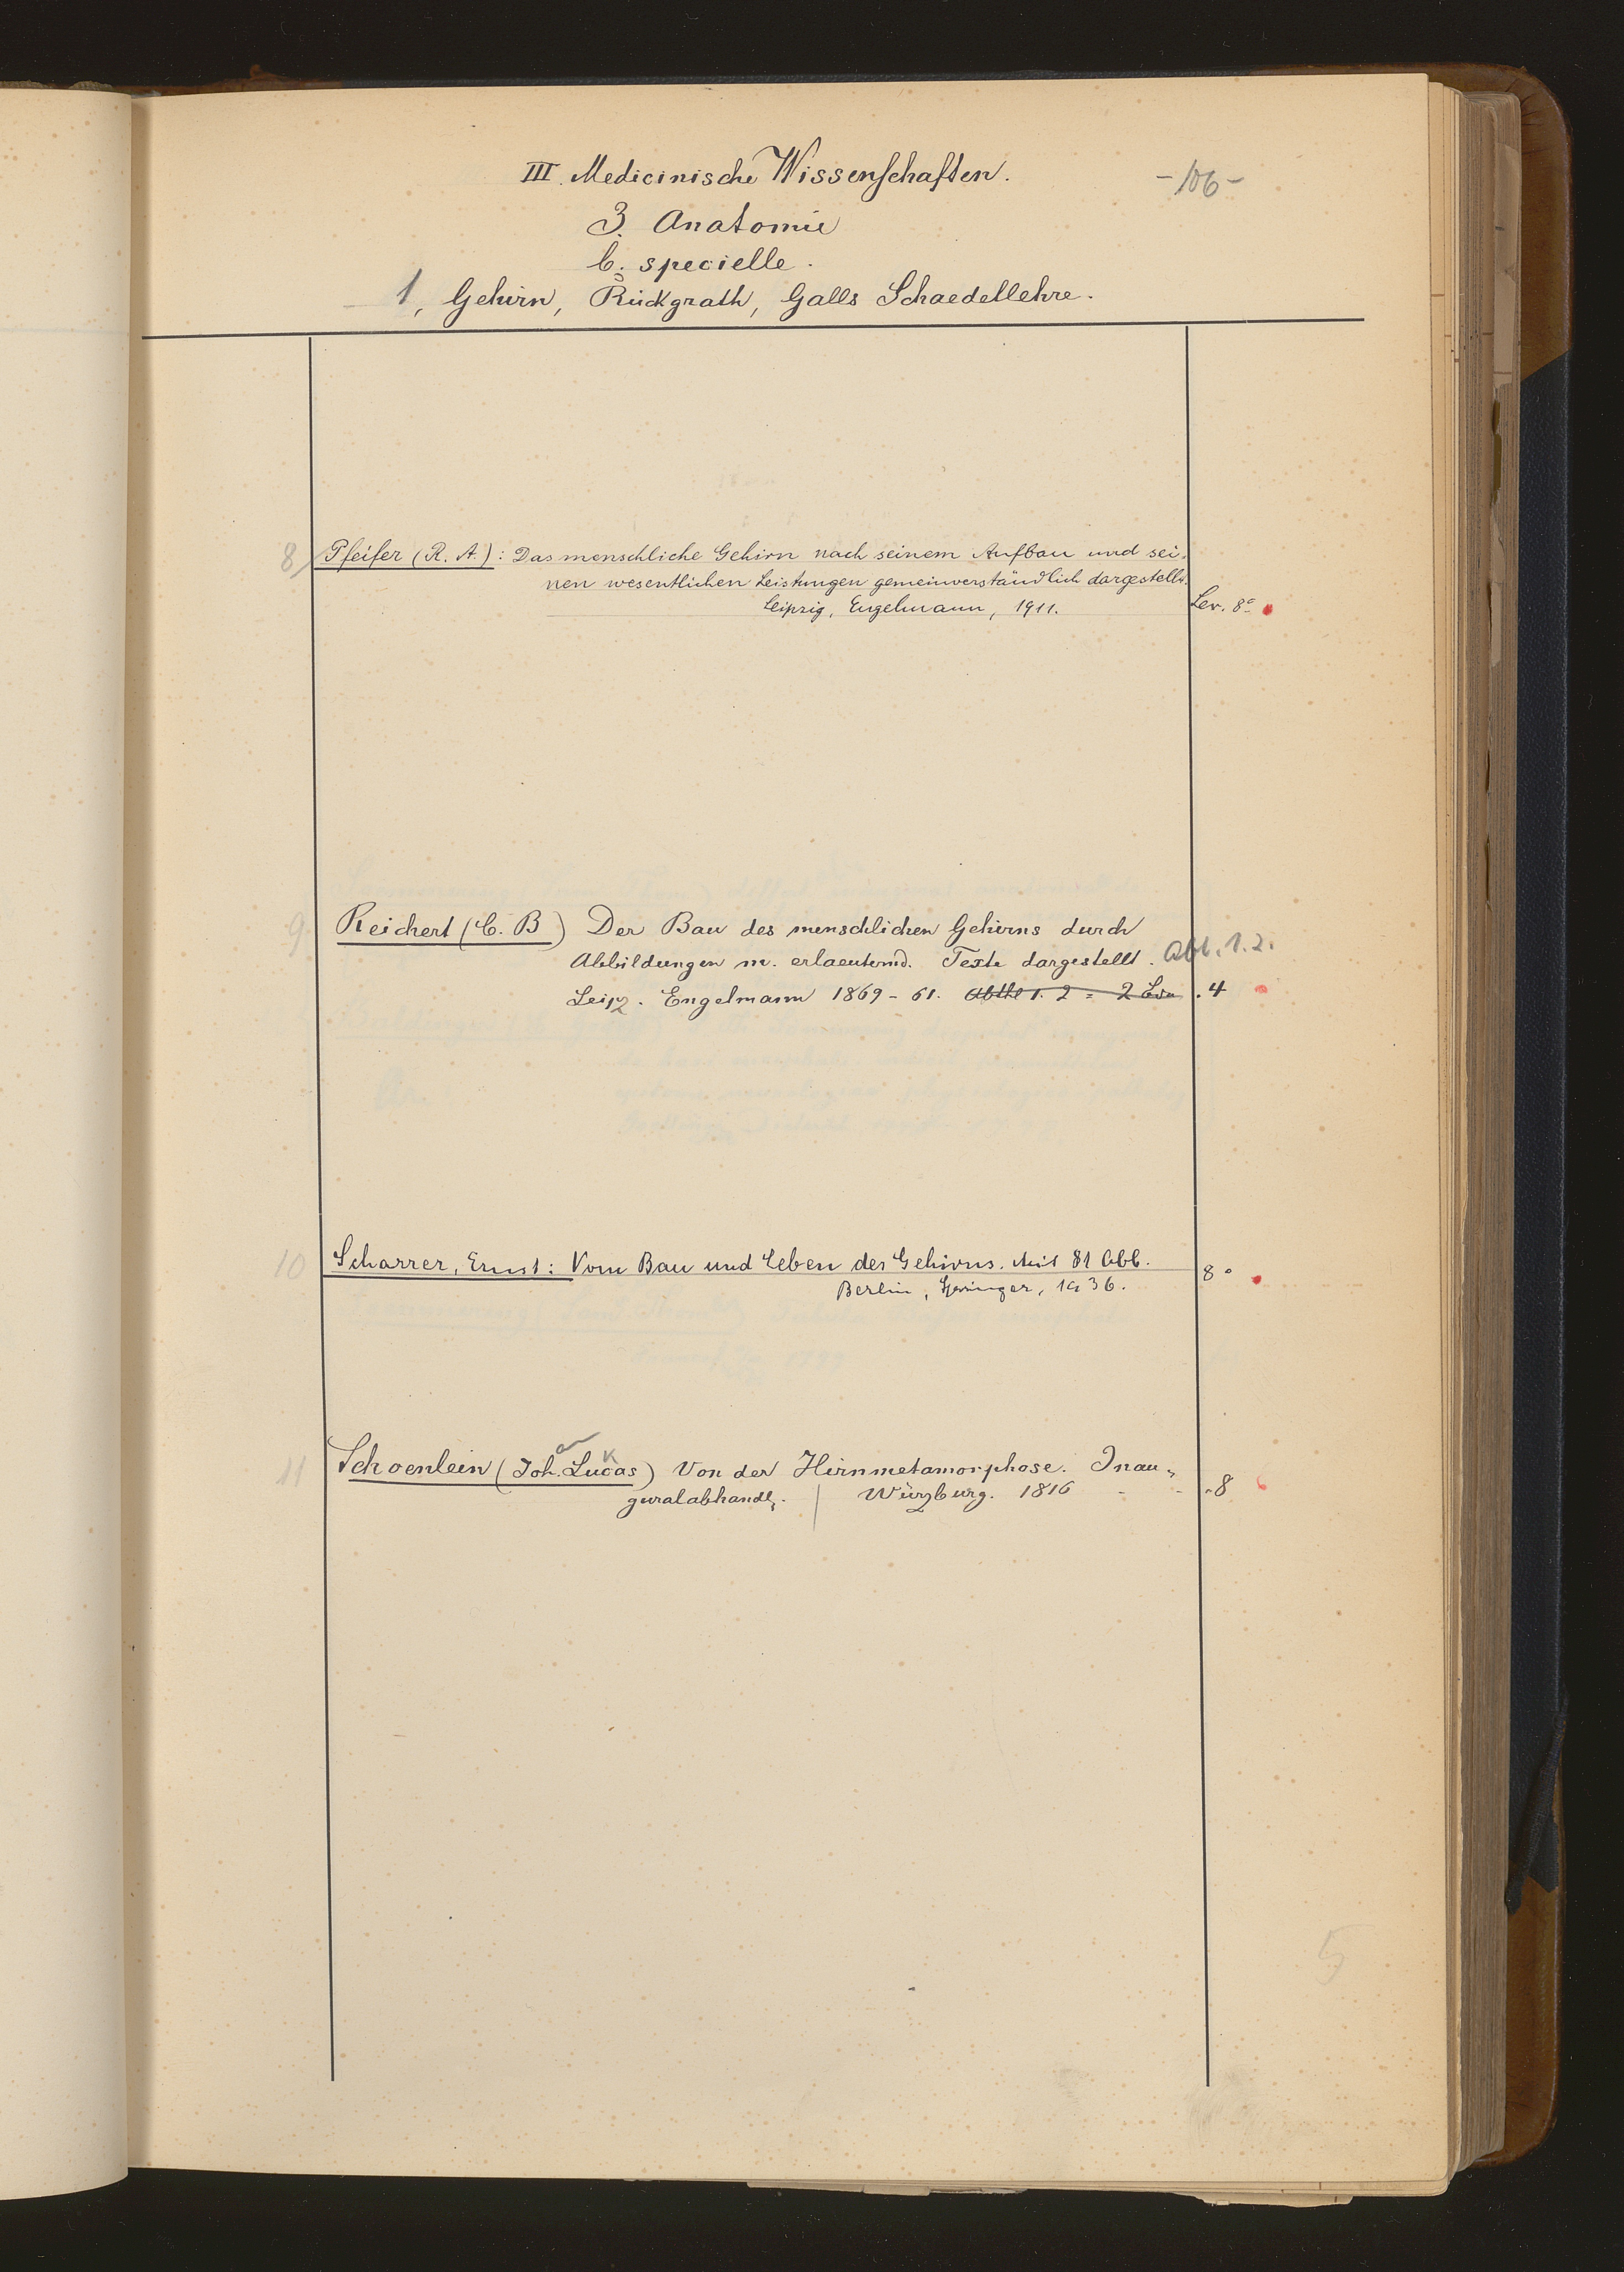 III. Medicinische Wissenschaften.
-106-
3. Anatomie
b. specielle.
1, Gehirn, Rückgrath, Galls Schaedellehre.
8, Pfeifer (R. A.): Das menschliche Gehirn nach seinem Aufbau und sei-
nen wesentlichen Leistungen gemeinverständlich dargestellt.
Leipzig, Engelmann, 1911. Lex. 8°
9. Reichert (C. B) Der Bau des menschlichen Gehirns durch
Abbildungen m. erlaeuternd. Texte dargestellt. Abt. 1. 2.
Leipz. Engelmann 1869-61. Abthl 1. 2 = 2 .4
10 Scharrer, Ernst: Vom Bau und Leben des Gehirns. Mit 81 Abb.
Berlin, Springer, 1936. 8°
11 Schoenlein (Joh. Lucas) Von der Hirnmetamorphose. Inau-
an k
guralabhandl. | Würzburg. 1816 - - .8
5